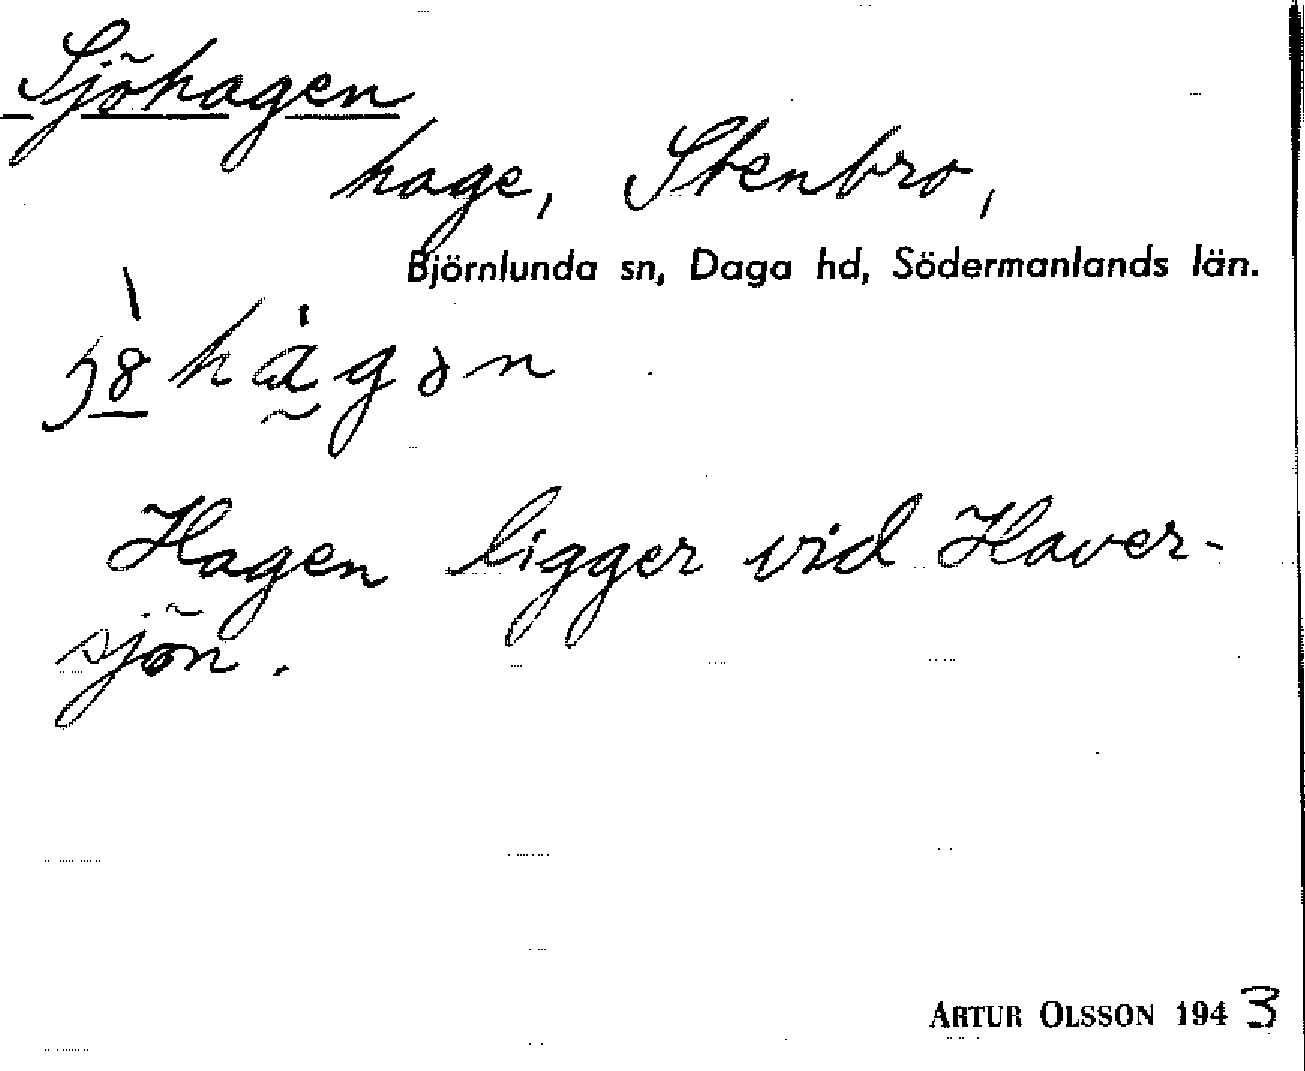 Sjöhagen
hage, Stenbro,
Björnlunda sn, Daga hd, Södermanlands län.
Hagen ligger vid Haver-
sjön.
ARTUR OLSSON 1943